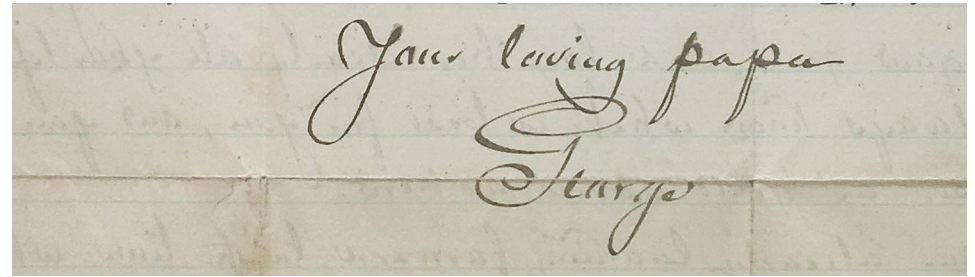 Your loving papa
George